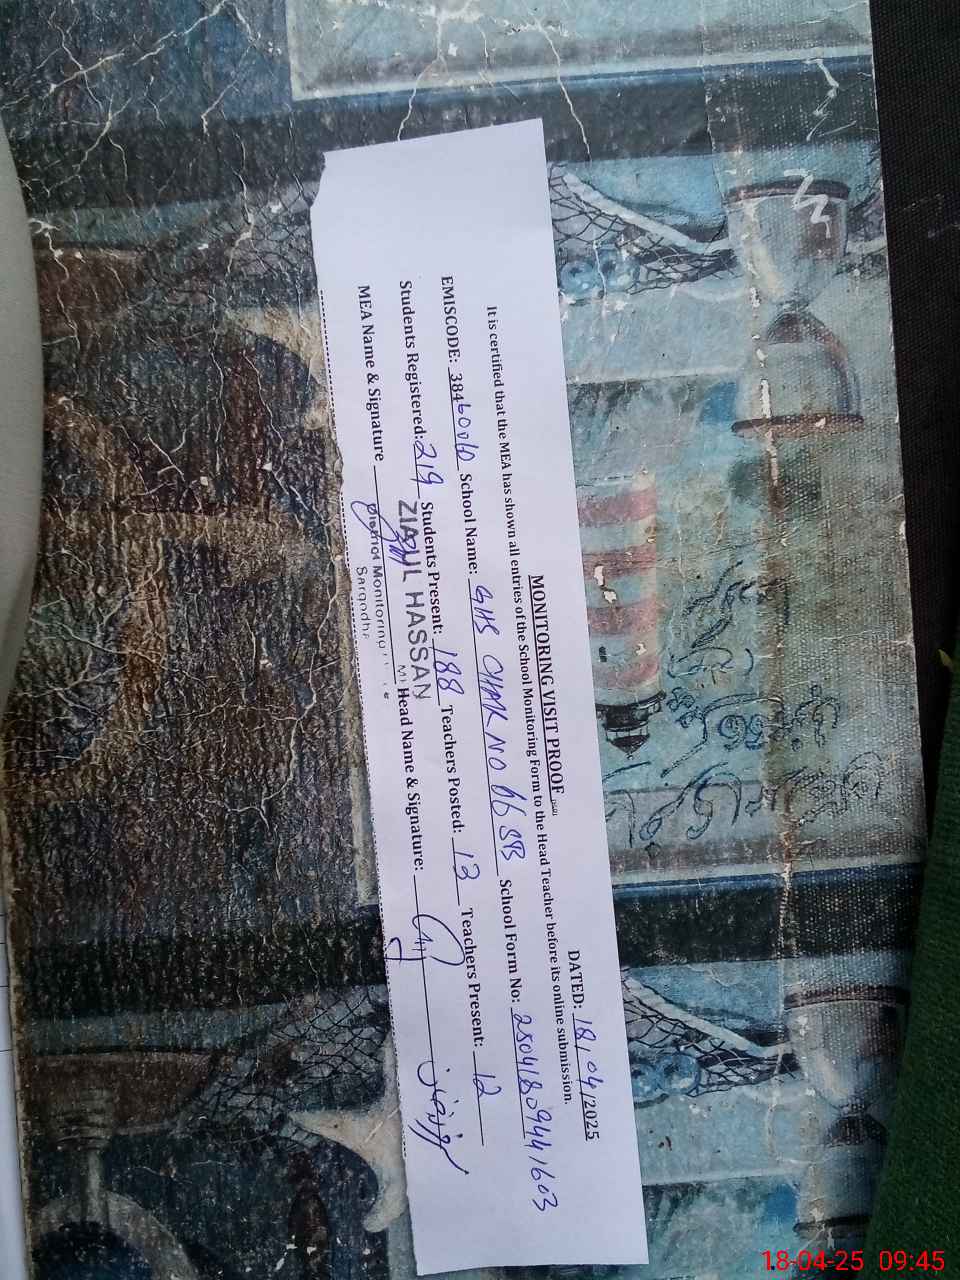 MONITORING VISIT PROOF
DATED: 18/04/2025
It is certified that the MEA has shown all entries of the School Monitoring Form to the Head Teacher before its online submission.
EMISCODE: 38460010 School Name: GHS CHAK NO 16 SB School Form No: 25041809441603
Students Registered: 219 Students Present: 188 Teachers Posted: 13 Teachers Present: 12
MEA Name & Signature Head Name & Signature:
ZIAUL HASSAN
District Monitoring
Sargodha
18-04-25 09:45